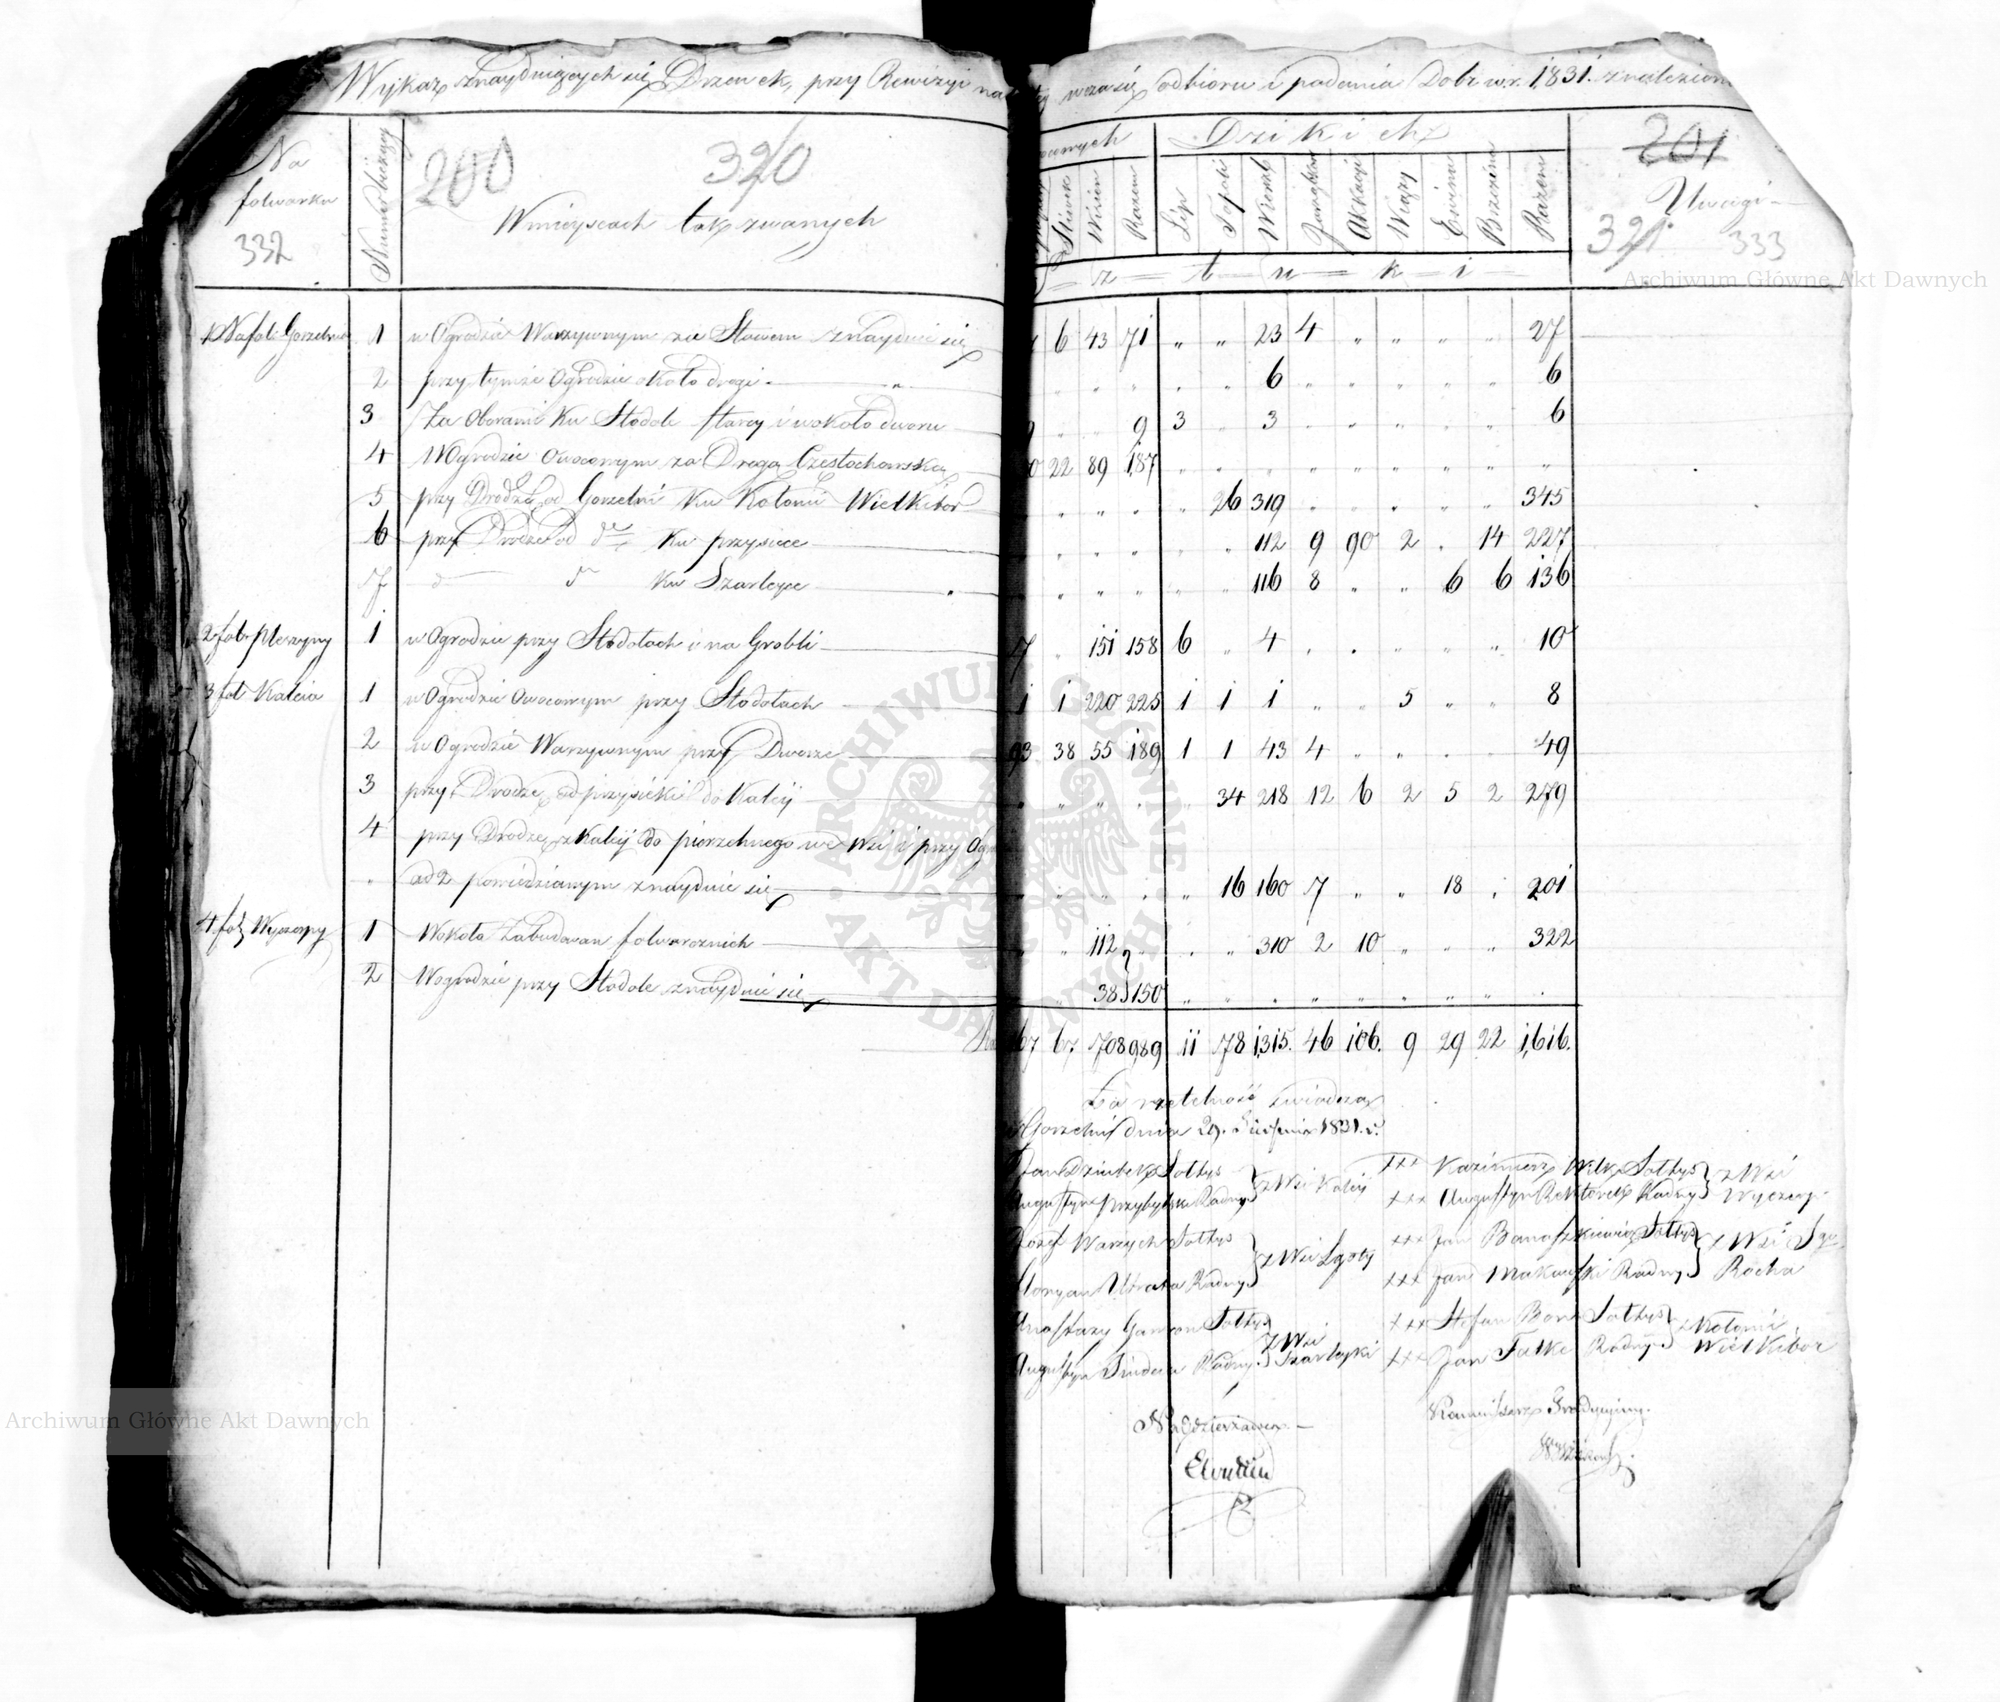 Wykaz znayduiących się Drzewek, przy Rewizyi
w czasie odbioru i podania Dobr w r. 1831. znalezion
Na folwarku
Numer bieżący
200
320
332
W mieyscach tak zwanych
Dzikich
201
Uwagi
321
333
Śliwek
Wisien
Razem
Lip
Topoli
Wierzb
Akacyi
Wiązy
Brzezina
Razem
z t u k i
Archiwum Główne Akt Dawnych
1 Na fol. Gorzelnia 1 w Ogrodzie Warzywnym za Stawem znayduie się 6 43 71 " " 23 4 " " " " 27
2 przy tymże Ogrodzie około drogi 6 6
3 Za Oborami ku Stodole starey i wokoło dworu 9 3 3 6
4 W Ogrodzie Owocowym za Drogą Częstochowską 22 89 187
5 przy Drodze od Gorzelni ku Kolonii Wielkibor 26 319 345
6 przy Drodze od dto ku przysiece 112 9 90 2 14 227
7 d d ku Szarleyce 116 8 6 6 136
2 fol. 1 w Ogrodzie przy Stodołach i na Grobli 7 151 158 6 4 10
3 fol Kaleia 1 w Ogrodzie Owocowym przy Stodołach 1 220 225 1 1 1 5 8
2 w Ogrodzie Warzywnym przy Dworze 93 38 55 189 1 1 43 4 49
3 przy Drodze od przysieki do Kaleij 34 218 12 6 2 5 2 279
4 przy Drodze z Kaleij do pierzchnego we Wsi i przy
ad 2 powiedzianym znayduie się 16 160 7 18 201
4 fol. Wyczerpy 1 Wokoło Zabudowan folwarcznich 112 310 2 10 322
2 W ogrodzie przy Stodole znayduie się 38 150
67 67 708 989 11 78 1315. 46 106. 9 29 22 1,616.
Za rzetelność świadczą
Gorzelni dnia 29. 1831. r.
Jan Sołtys
Augustyn Radny
z Wsi Kaleij
+++ Kazimierz Wilk Sołtys
+++ Augustyn Radny
z Wsi Wyczerp
Józef Warzych Sołtys
Floryan Utrata Radny
z Wsi Lgoty
+++ Jan Banaszkiewicz Sołtys
+++ Jan Makowski Radny
z Wsi Sgo Rocha
Anastazy Sołtys
Augustyn Radny
z Wsi Szarleyki
+++ Stefan Sołtys
+++ Jan Radny
z Kolonii Wielkibor
Archiwum Główne Akt Dawnych
ARCHIWUM GŁÓWNE AKT DAWNYCH